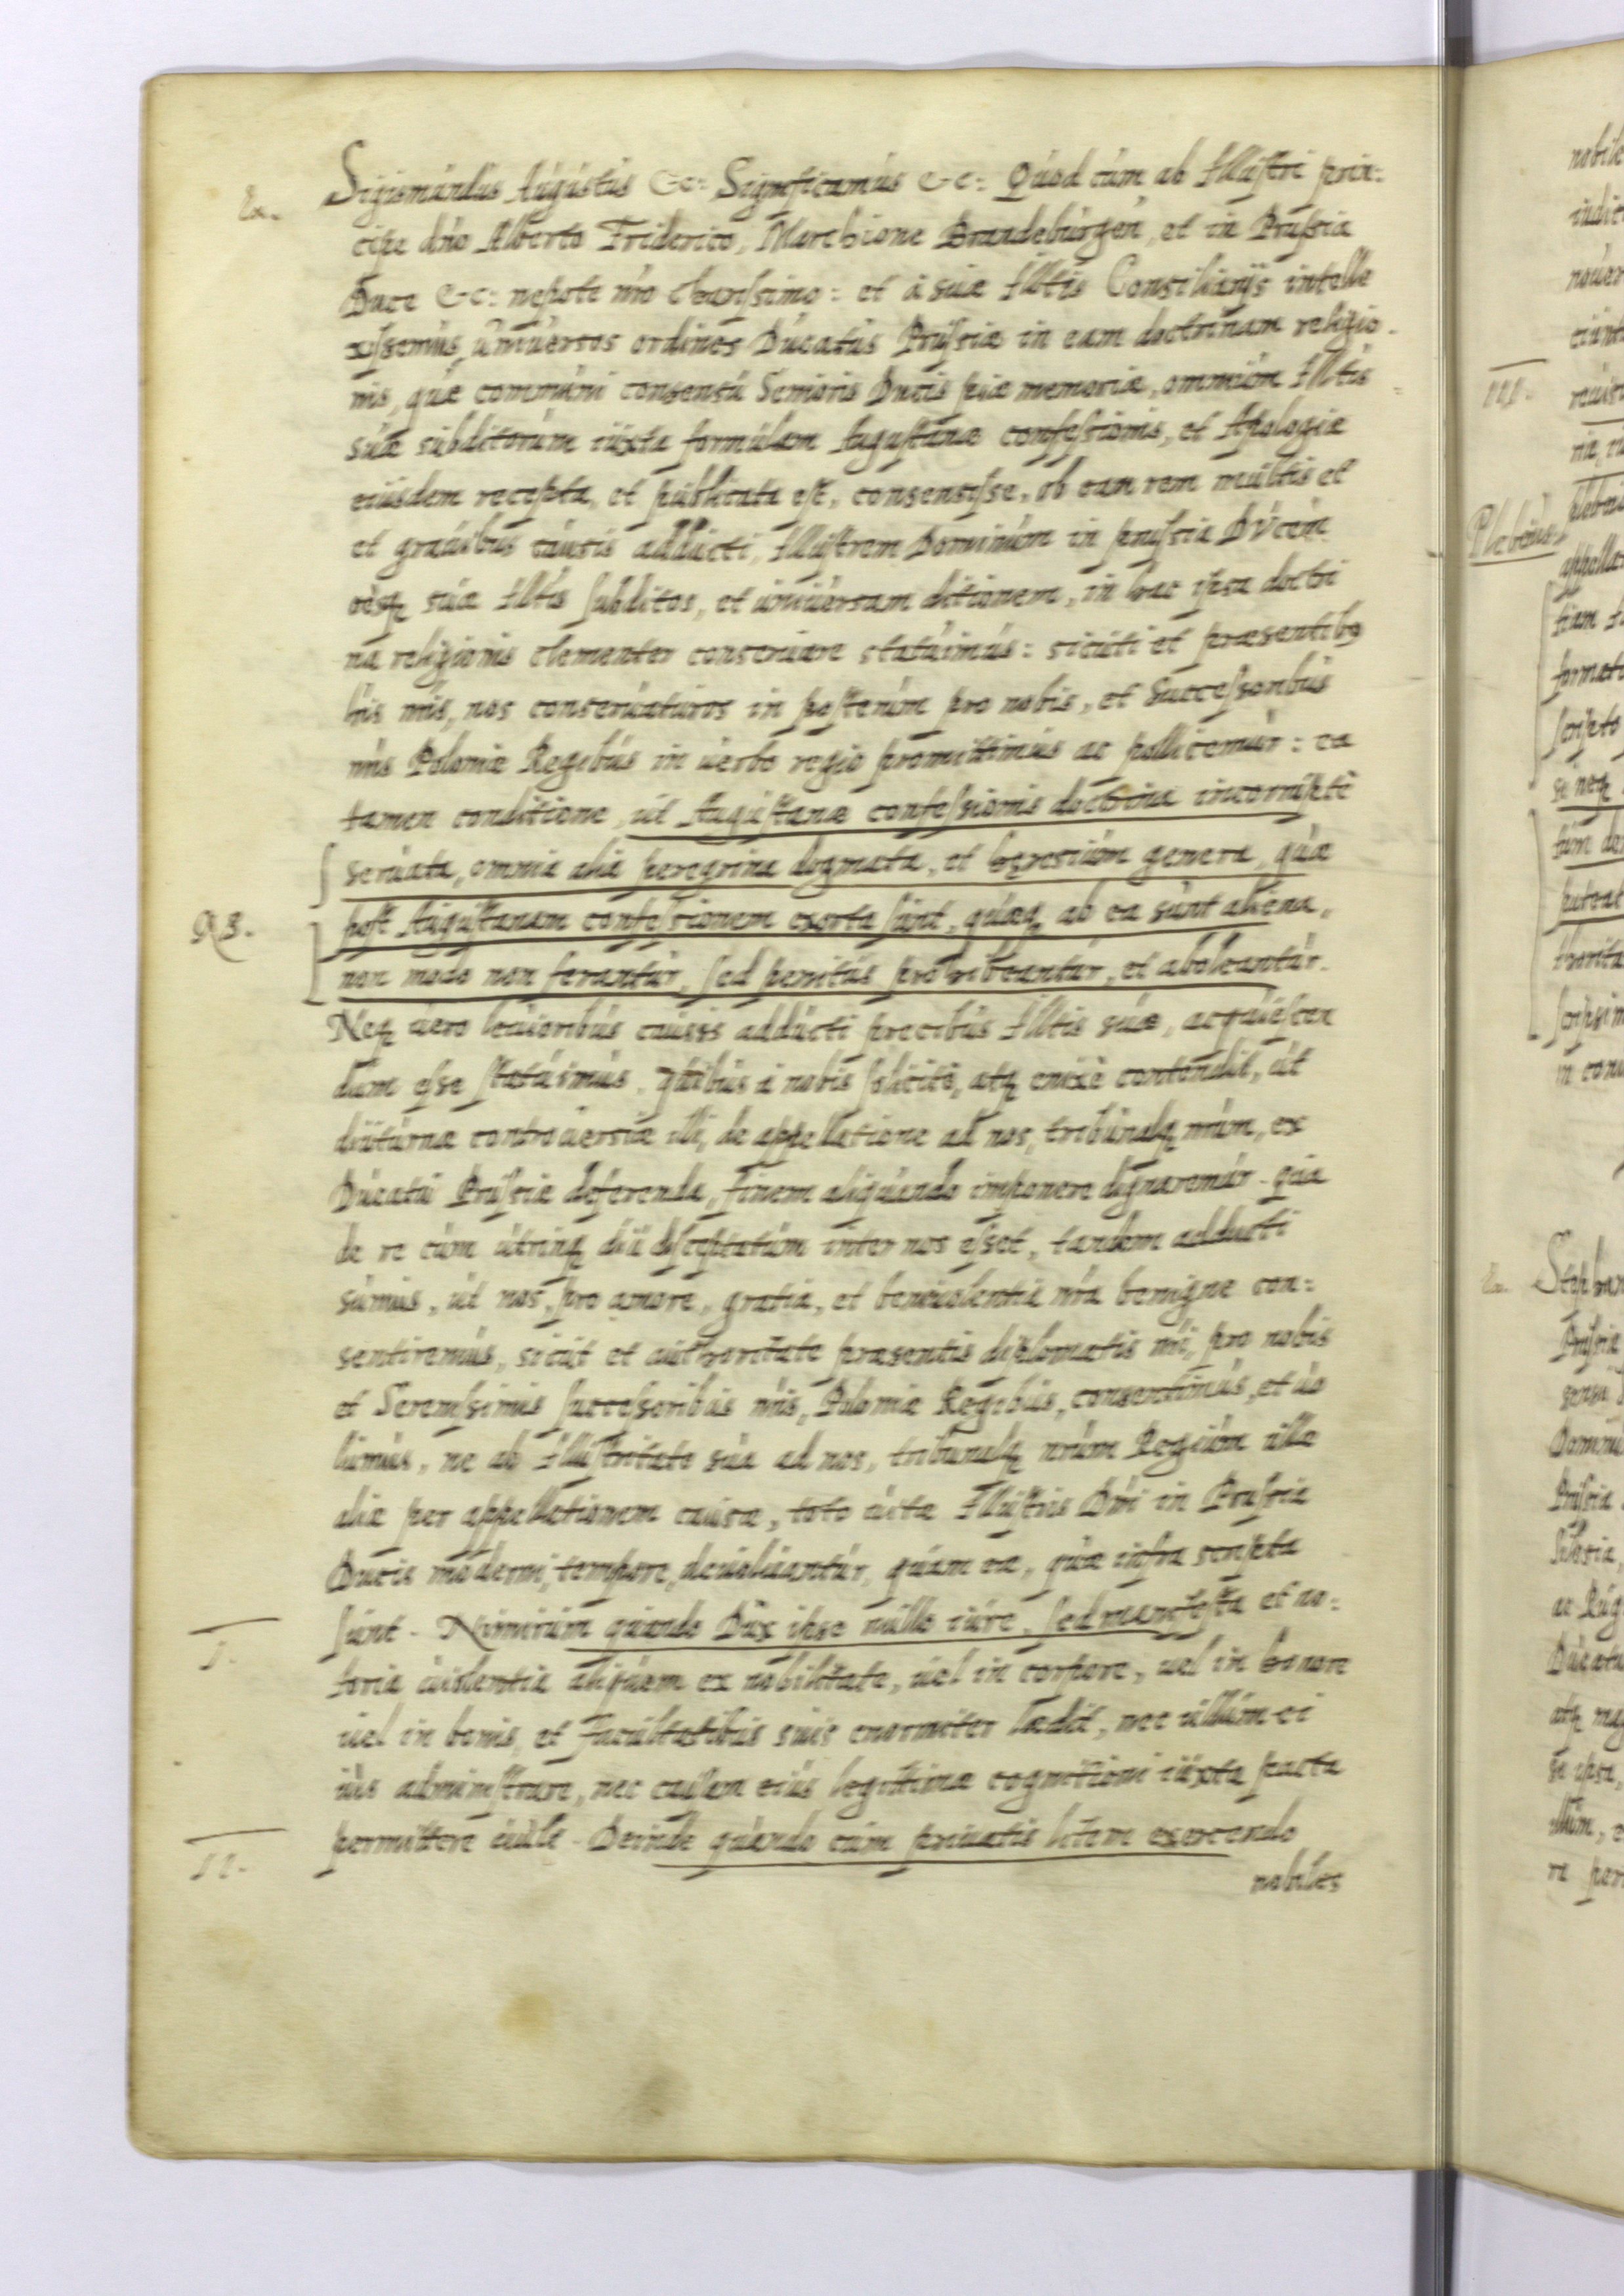 Ex.
Sigismundus Augustus &c: Significamus &c: Quod cum ab Illustri prin:
cipe dno Alberto Friderico, Marchione Brandeburgen, et in Prussia
Duce &c: nepote nro charissimo: et à suæ Illtis Consiliarijs intelle
xissemus, universos ordines Ducatus Prussiæ in eam doctrinam religio-
nis, quæ communi consensu Senioris Ducis piæ memoriæ, omnium Illtis
suæ subditorum iuxta formulam Augustanæ confessionis, et Apologiæ
eiusdem recepta, et publicata est, consensisse, ob eam rem multis et
et gravibus causis adducti, Illustrem Dominum in prussia Ducem
oesq suæ Illtis subditos, et universam ditionem, in hac ipsa doctri
na religionis clementer conservare statuimus: sicuti et præsentibus
lris nris, nos conservaturos in posterum pro nobis, et Successoribus
nris Poloniæ Regibus in verbo regio promittimus ac pollicemur: ea
tamen conditione, ut Augustanæ confessionis doctrina incorruptè
servata, omnia alia peregrina dogmata, et hęresium genera, quæ
NB.
post Augustanam confessionem exorta sunt, quæq ab ea sunt aliena,
non modo non ferantur, sed penitus prohibeantur, et aboleantur.
Neq vero levioribus causis adducti precibus Illtis suæ, acquiescen
dum esse statuimus. quibus à nobis solicitè, atq enixè contendit, ut
diuturnæ controversiæ illi, de appellatione ad nos, tribunalq nrum, ex
Ducatu Prussiæ deferenda, finem aliquando imponere dignaremur. qua
de re cum utrinq diu disceptatum inter nos esset, tandem adducti
sumus, ut nos, pro amore, gratia, et benevolentia nra benigne con:
sentiremus, sicut et authoritate præsentis diplomatis nri, pro nobis
et Serenissimis successoribus nris, Poloniæ Regibus, consentimus, et vo
lumus, ne ab Illustritate sua ad nos, tribunalq nrum Regium ullæ
aliæ per appellationem causæ, toto vitæ Illustris Dni in Prussia
Ducis moderni, tempore, devolvantur, quam eæ, quæ infra scripta
I.
sunt. Nimirum quando Dux ipse nullo iure, sed manifesta et no:
toria evidentia aliquem ex nobilitate, vel in corpore, vel in honore
vel in bonis, et facultatibus suis enormiter lædit, nec ullum ei
ius administrare, nec causam eius legittimæ cognitioni iuxta pacta
II.
permittere vult. Deinde quando cum privatis litem exercendo
nobiles
III.
Plebeius
Ex.